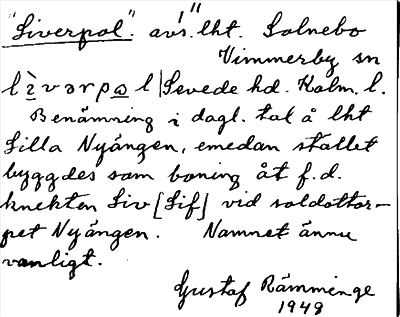 "Liverpol". avs. lht. Solnebo
Vimmerby sn
Sevede hd. Kalm. l.
Benämning i dagl. tal å lht
Lilla Nyängen, emedan stället
byggdes som boning åt f.d.
knekten Liv [Lif] vid soldattor-
pet Nyängen. Namnet ännu
vanligt.
Gustaf Rämminge
1949